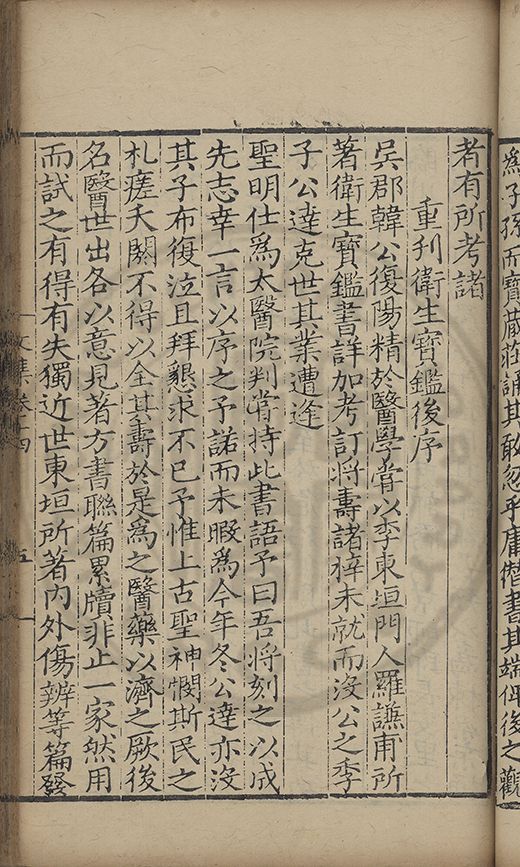 為子孫而寶嚴莊誦其敢忽乎庸僭書其端俾後之觀
者有所考諸
重刋衛生寶鑑後序
吳郡韓公復陽精於醫學甞以李東垣門人羅謙甫所
著衛生寶鑑書詳加考訂將壽諸梓未就而沒公之季
子公達克世其業遭逢
聖明仕為太醫院判甞持此書語予曰吾將刻之以成
先志幸一言以序之予諾而未暇為今年冬公達亦沒
其子布復泣且拜懇求不已予惟上古聖神憫斯民之
札瘥夭閼不得以全其壽於是為之醫藥以濟之厥後
名醫世出各以意見著方書聯篇累牘非止一家然用
而試之有得有失獨近世東垣所著內外傷辨等篇發
文集卷十四
五